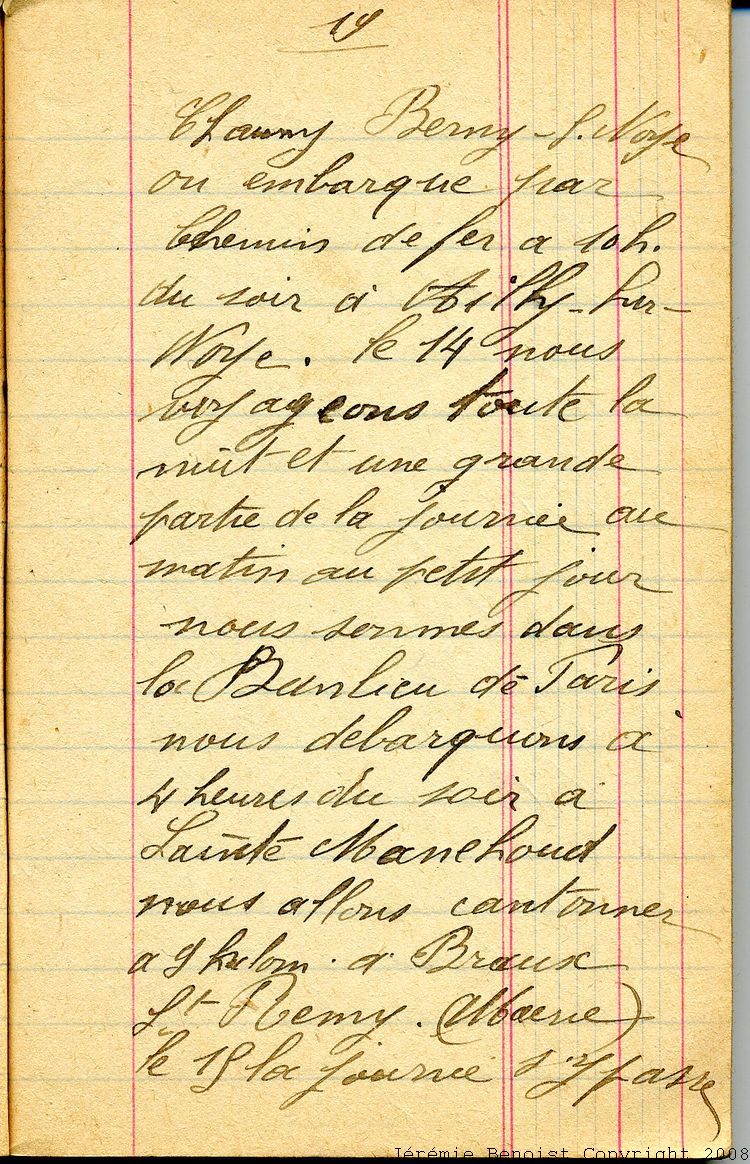 19
Chauny Berny-s. Noye
on embarque par
Chemin de fer a 10h.
du soir à Ailly-sur-
Noye. le 14 nous
voyageons toute la
nuit et une grande
partie de la journée au
matin au petit jour
nous sommes dans
la Banlieu de Paris
nous debarquons à
4 heures du soir a
Sainte Manehoud
nous allons cantonner
a 9 kilom. a Braux
St Remy. (Marne)
le 15 la journée s'y passe
Jérémie Benoist Copyright 2008